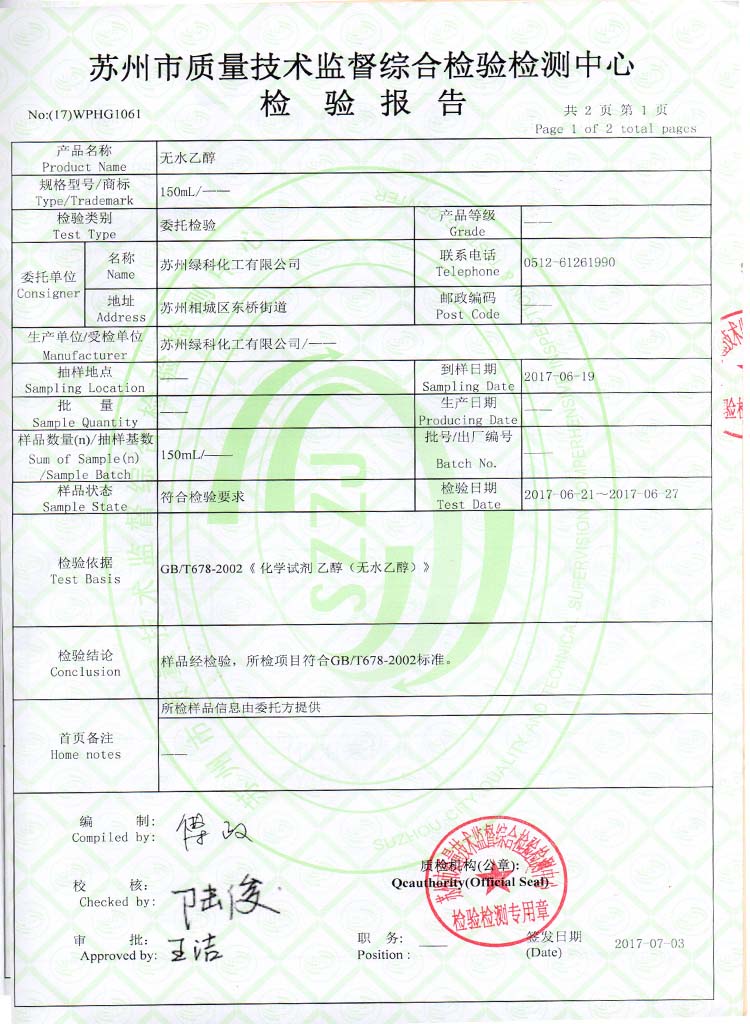 苏州市质量技术监督综合检验检测中心
检 验 报 告
No:(17)WPHG1061
共 2 页 第 1 页
Page 1 of 2 total pages
产品名称
Product Name
无水乙醇
规格型号/商标
Type/Trademark
150mL/——
检验类别
Test Type
委托检验
产品等级
Grade
——
委托单位
Consigner
名称
Name
苏州绿科化工有限公司
联系电话
Telephone
0512-61261990
地址
Address
苏州相城区东桥街道
邮政编码
Post Code
——
生产单位/受检单位
Manufacturer
苏州绿科化工有限公司/——
抽样地点
Sampling Location
——
到样日期
Sampling Date
2017-06-19
批 量
Sample Quantity
——
生产日期
Producing Date
——
样品数量(n)/抽样基数
Sum of Sample(n)
/Sample Batch
150mL/——
批号/出厂编号
Batch No.
——
样品状态
Sample State
符合检验要求
检验日期
Test Date
2017-06-21～2017-06-27
检验依据
Test Basis
GB/T678-2002《 化学试剂 乙醇（无水乙醇）》
检验结论
Conclusion
样品经检验，所检项目符合GB/T678-2002标准。
首页备注
Home notes
所检样品信息由委托方提供
——
SZZJ
编 制:
Compiled by:
校 核:
Checked by:
陆俊
审 批:
Approved by:
王洁
职 务:
Position :
——
质检机构(公章):
Qcauthority(Official Seal)
检验检测专用章
签发日期
(Date)
2017-07-03